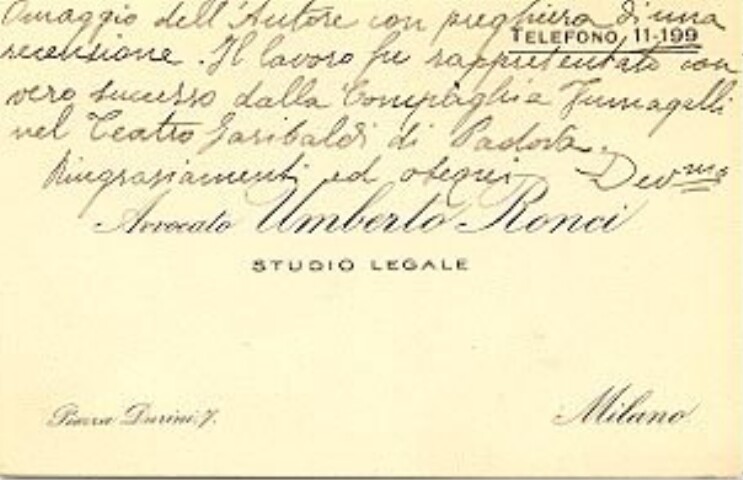 Omaggio dell'Autore con preghiera di una
TELEFONO, 11-199
recensione. Il lavoro fu rappresentato con
vero successo dalla Compagnia Fumagalli
nel Teatro Garibaldi di Padova.
Ringraziamenti ed ossequi Dev.mo
Avvocato Umberto Ronci
STUDIO LEGALE
Piazza Durini, 7.
Milano